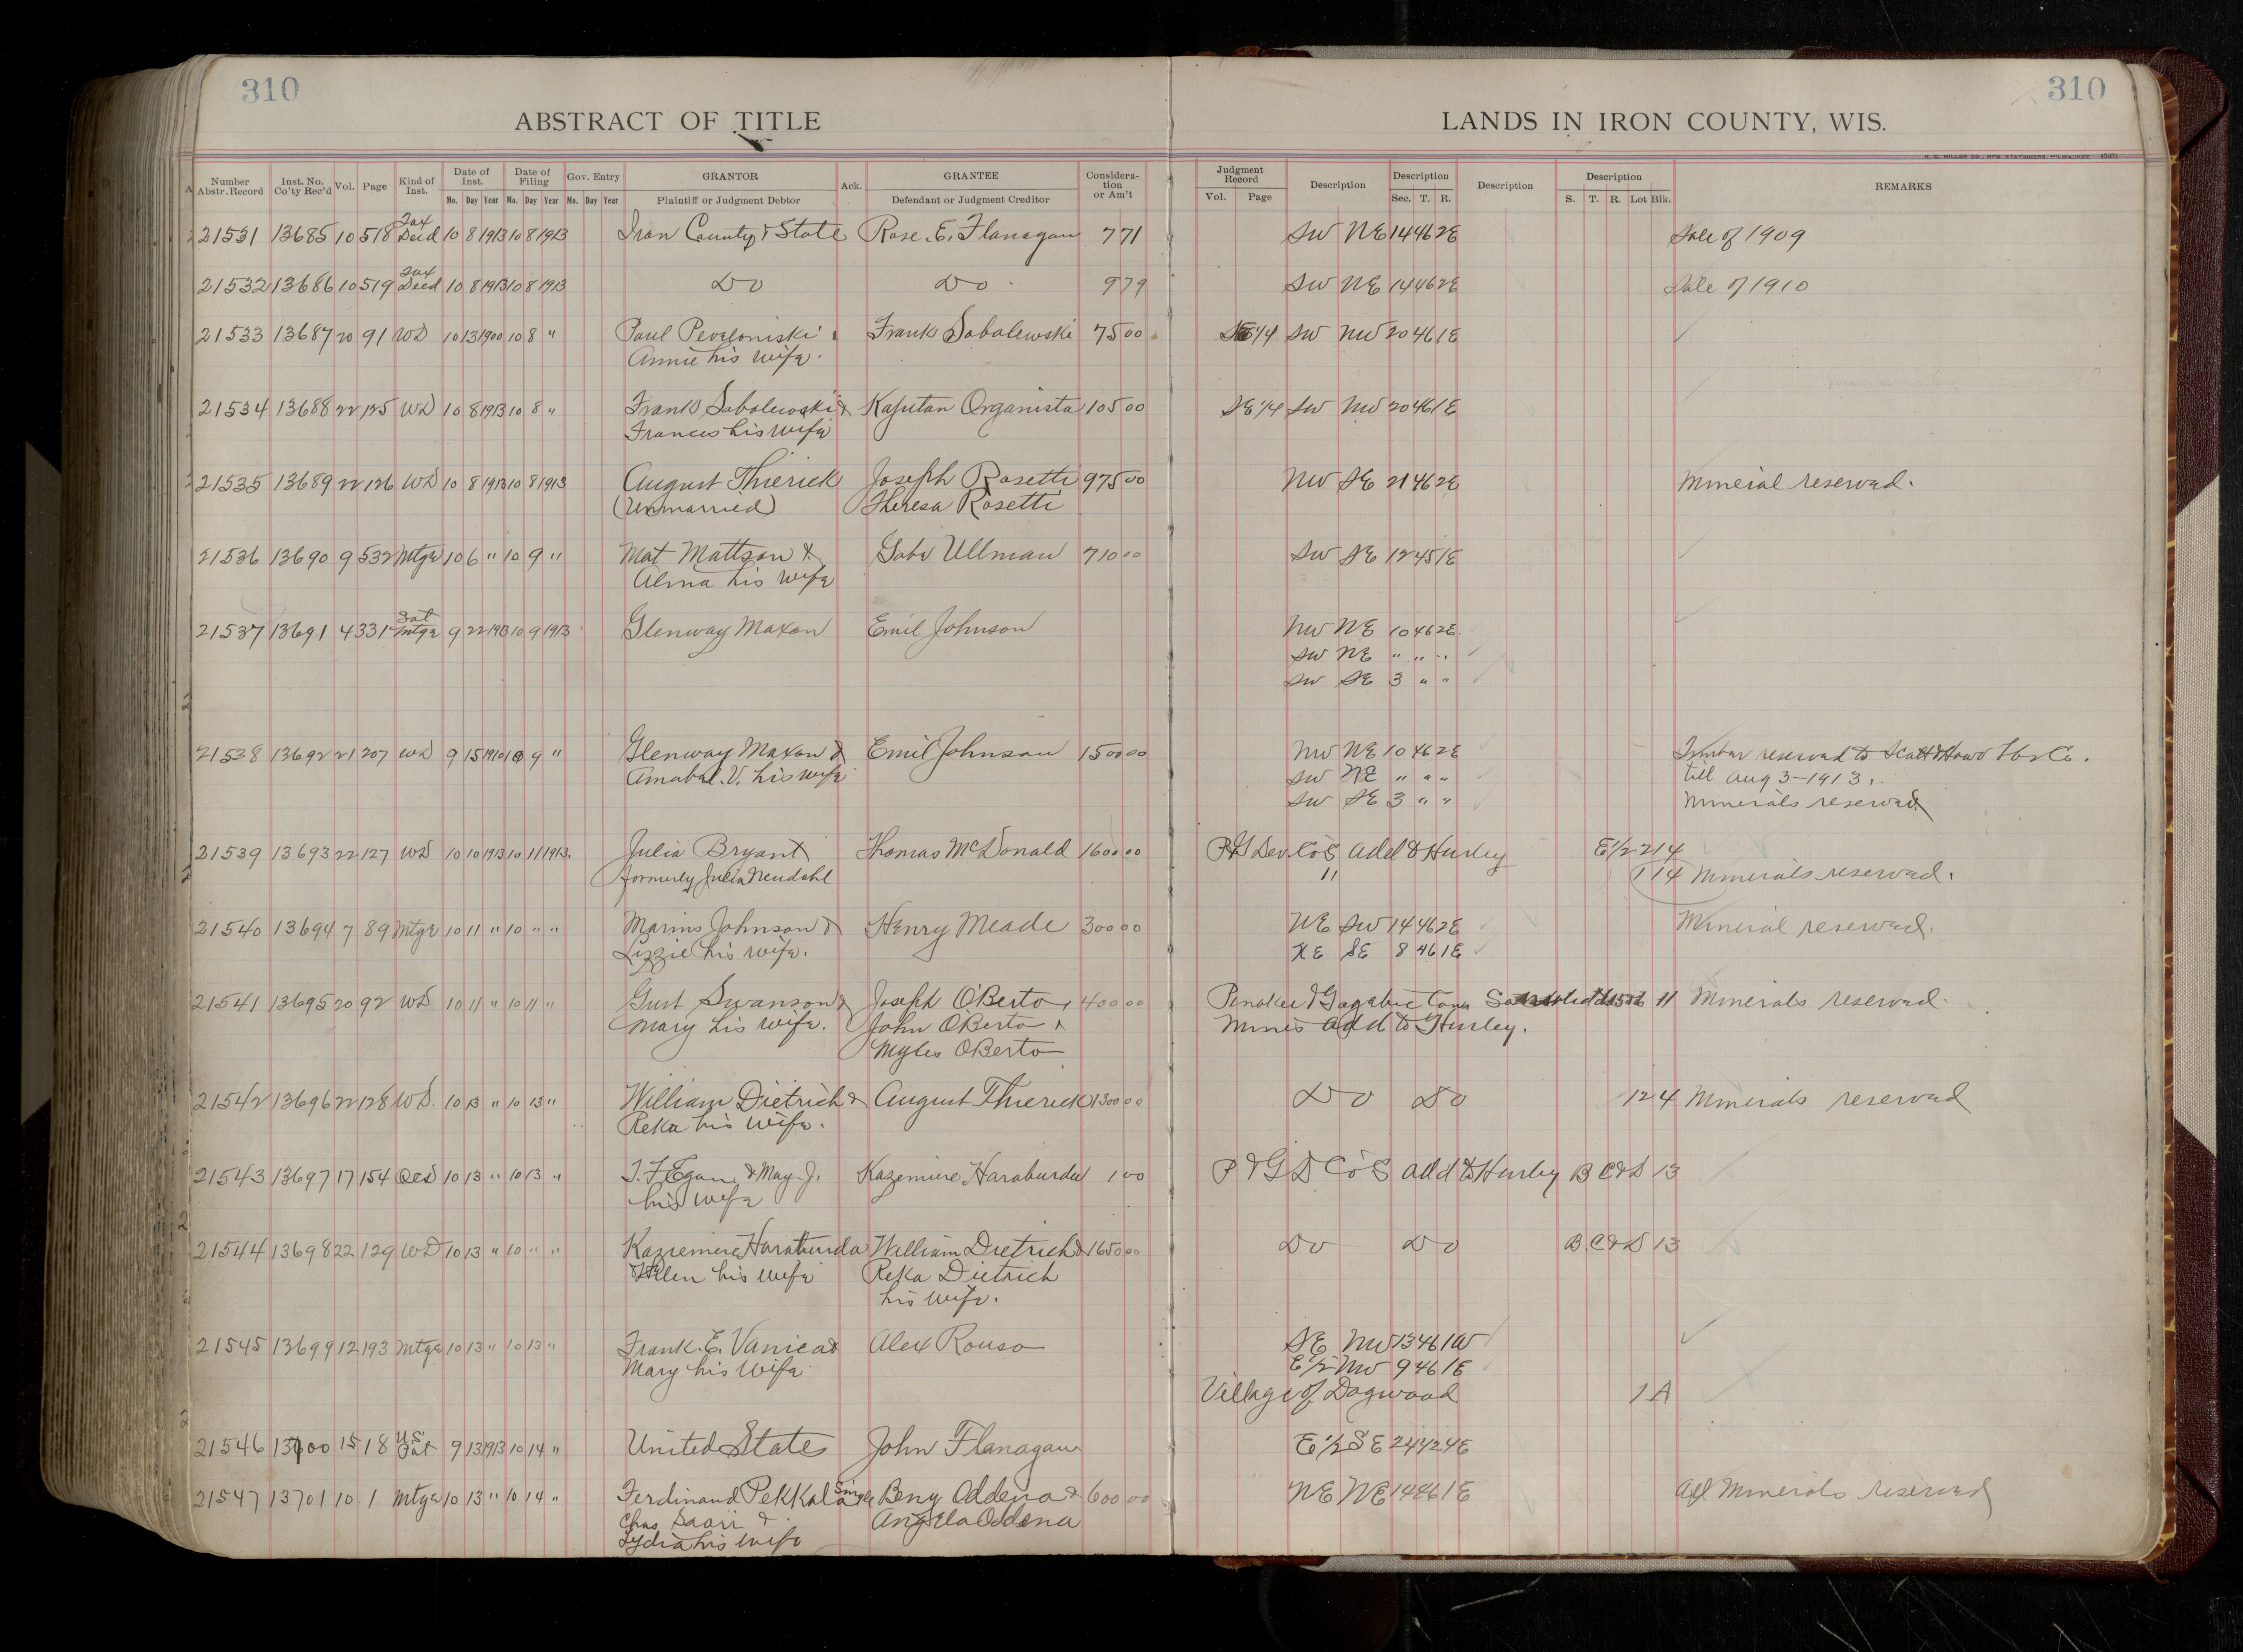 310
310
ABSTRACT OF TITLE
LANDS IN IRON COUNTY, WIS.
H. C. MILLER CO., MFG. STATIONERS, MILWAUKEE
Number Abstr. Record Inst. No. Co'ty Rec'd Vol. Page Kind of Inst. Date of Inst. Mo. Day Year Date of Filing Mo. Day Year Gov. Entry Mo. Day Year GRANTOR Plaintiff or Judgment Debtor Ack. GRANTEE Defendant or Judgment Creditor Considera-tion or Am't Judgment Record Vol. Page Description Description Sec. T. R. Description Description S. T. R. Lot Blk. REMARKS
21531 13685 10 518 Tax Deed 10 8 1913 10 8 1913 Iron County & State Rose E. Flanagan 7 71 SW NE 14 46 2E Sale of 1909
21532 13686 10 519 Tax Deed 10 8 1913 10 8 1913 Do Do 9 79 SW NE 14 46 2E Sale of 1910
21533 13687 20 91 WD 10 13 1900 10 8 " Paul & Frank Sobolewski 75 00 1/4 SW NW 20 46 1E
Annie his wife.
21534 13688 22 125 WD 10 8 1913 10 8 " Frank Sobolewski & Kajutan Organista 105 00 SE 1/4 SW NW 20 46 1E
Frances his wife
21535 13689 22 126 WD 10 8 1913 10 8 1913 August Thierick Joseph Rosetti 975 00 NW SE 21 46 2E Mineral reserved.
(Unmarried) Theresa Rosetti
21536 13690 9 532 Mtge 10 6 " 10 9 " Mat Mattson & Gabe Ullman 710 00 SW SE 12 45 1E
Alma his wife
21537 13691 4 331 Sat Mtge 9 22 1913 10 9 1913 Glenway Maxon Emil Johnson NW NE 10 46 2E
SW NE " " "
SW SE 3 " "
21538 13692 21 207 WD 9 15 1910 10 9 " Glenway Maxon & Emil Johnson 1500 00 NW NE 10 46 2E Timber reserved to Scott & Howe Lbr Co.
Amabel V. his wife SW NE " " " till Aug 3-1913.
SW SE 3 " " Minerals reserved
21539 13693 22 127 WD 10 10 1913 10 11 1913 Julia Bryant Thomas McDonald 1600 00 P&G Dev. Co's Add to Hurley E1/2 2 14
formerly Julia Neudahl " 1 14 Minerals reserved.
21540 13694 7 89 Mtge 10 11 " 10 " " Marins Johnson & Henry Meade 300 00 NE SW 14 46 2E Mineral reserved.
Lizzie his wife. NE SE 8 46 1E
21541 13695 20 92 WD 10 11 " 10 11 " Gust Swanson & Joseph O'Berto & 400 00 Penokee & Gogebic Cons 11 Minerals reserved.
Mary his wife. John O'Berto & Mines Add to Hurley.
Myles O'Berto
21542 13696 22 128 WD. 10 13 " 10 13 " William Dietrich & August Thierick 1300 00 Do Do 12 4 Minerals reserved
Reka his wife.
21543 13697 17 154 QCD 10 13 " 10 13 " T. F. Egan & May J. Kazemiere Haraburda 1 00 P & G D Co's Add to Hurley B C & D 13
his wife
21544 13698 22 129 WD 10 13 " 10 " " Kaziemire Haraburda William Dietrich & 1650 00 Do Do B. C & D 13
& Helen his wife Reka Dietrich
his wife.
21545 13699 12 193 Mtge 10 13 " 10 13 " Frank E. Vanica & Alex Rouso SE NW 13 46 1W
Mary his wife E 1/2 NW 9 46 1E
Village of Dogwood 1 A
21546 13700 15 18 U.S. Pat 9 13 1913 10 14 " United States John Flanagan E 1/2 SE 24 42 4E
21547 13701 10 1 Mtge 10 13 " 10 14 " Ferdinand Pekkala Single Beny Oddena & 600 00 NE NE 14 46 1E All Minerals reserved
Chas Saari & Angela Oddena
Lydia his wife